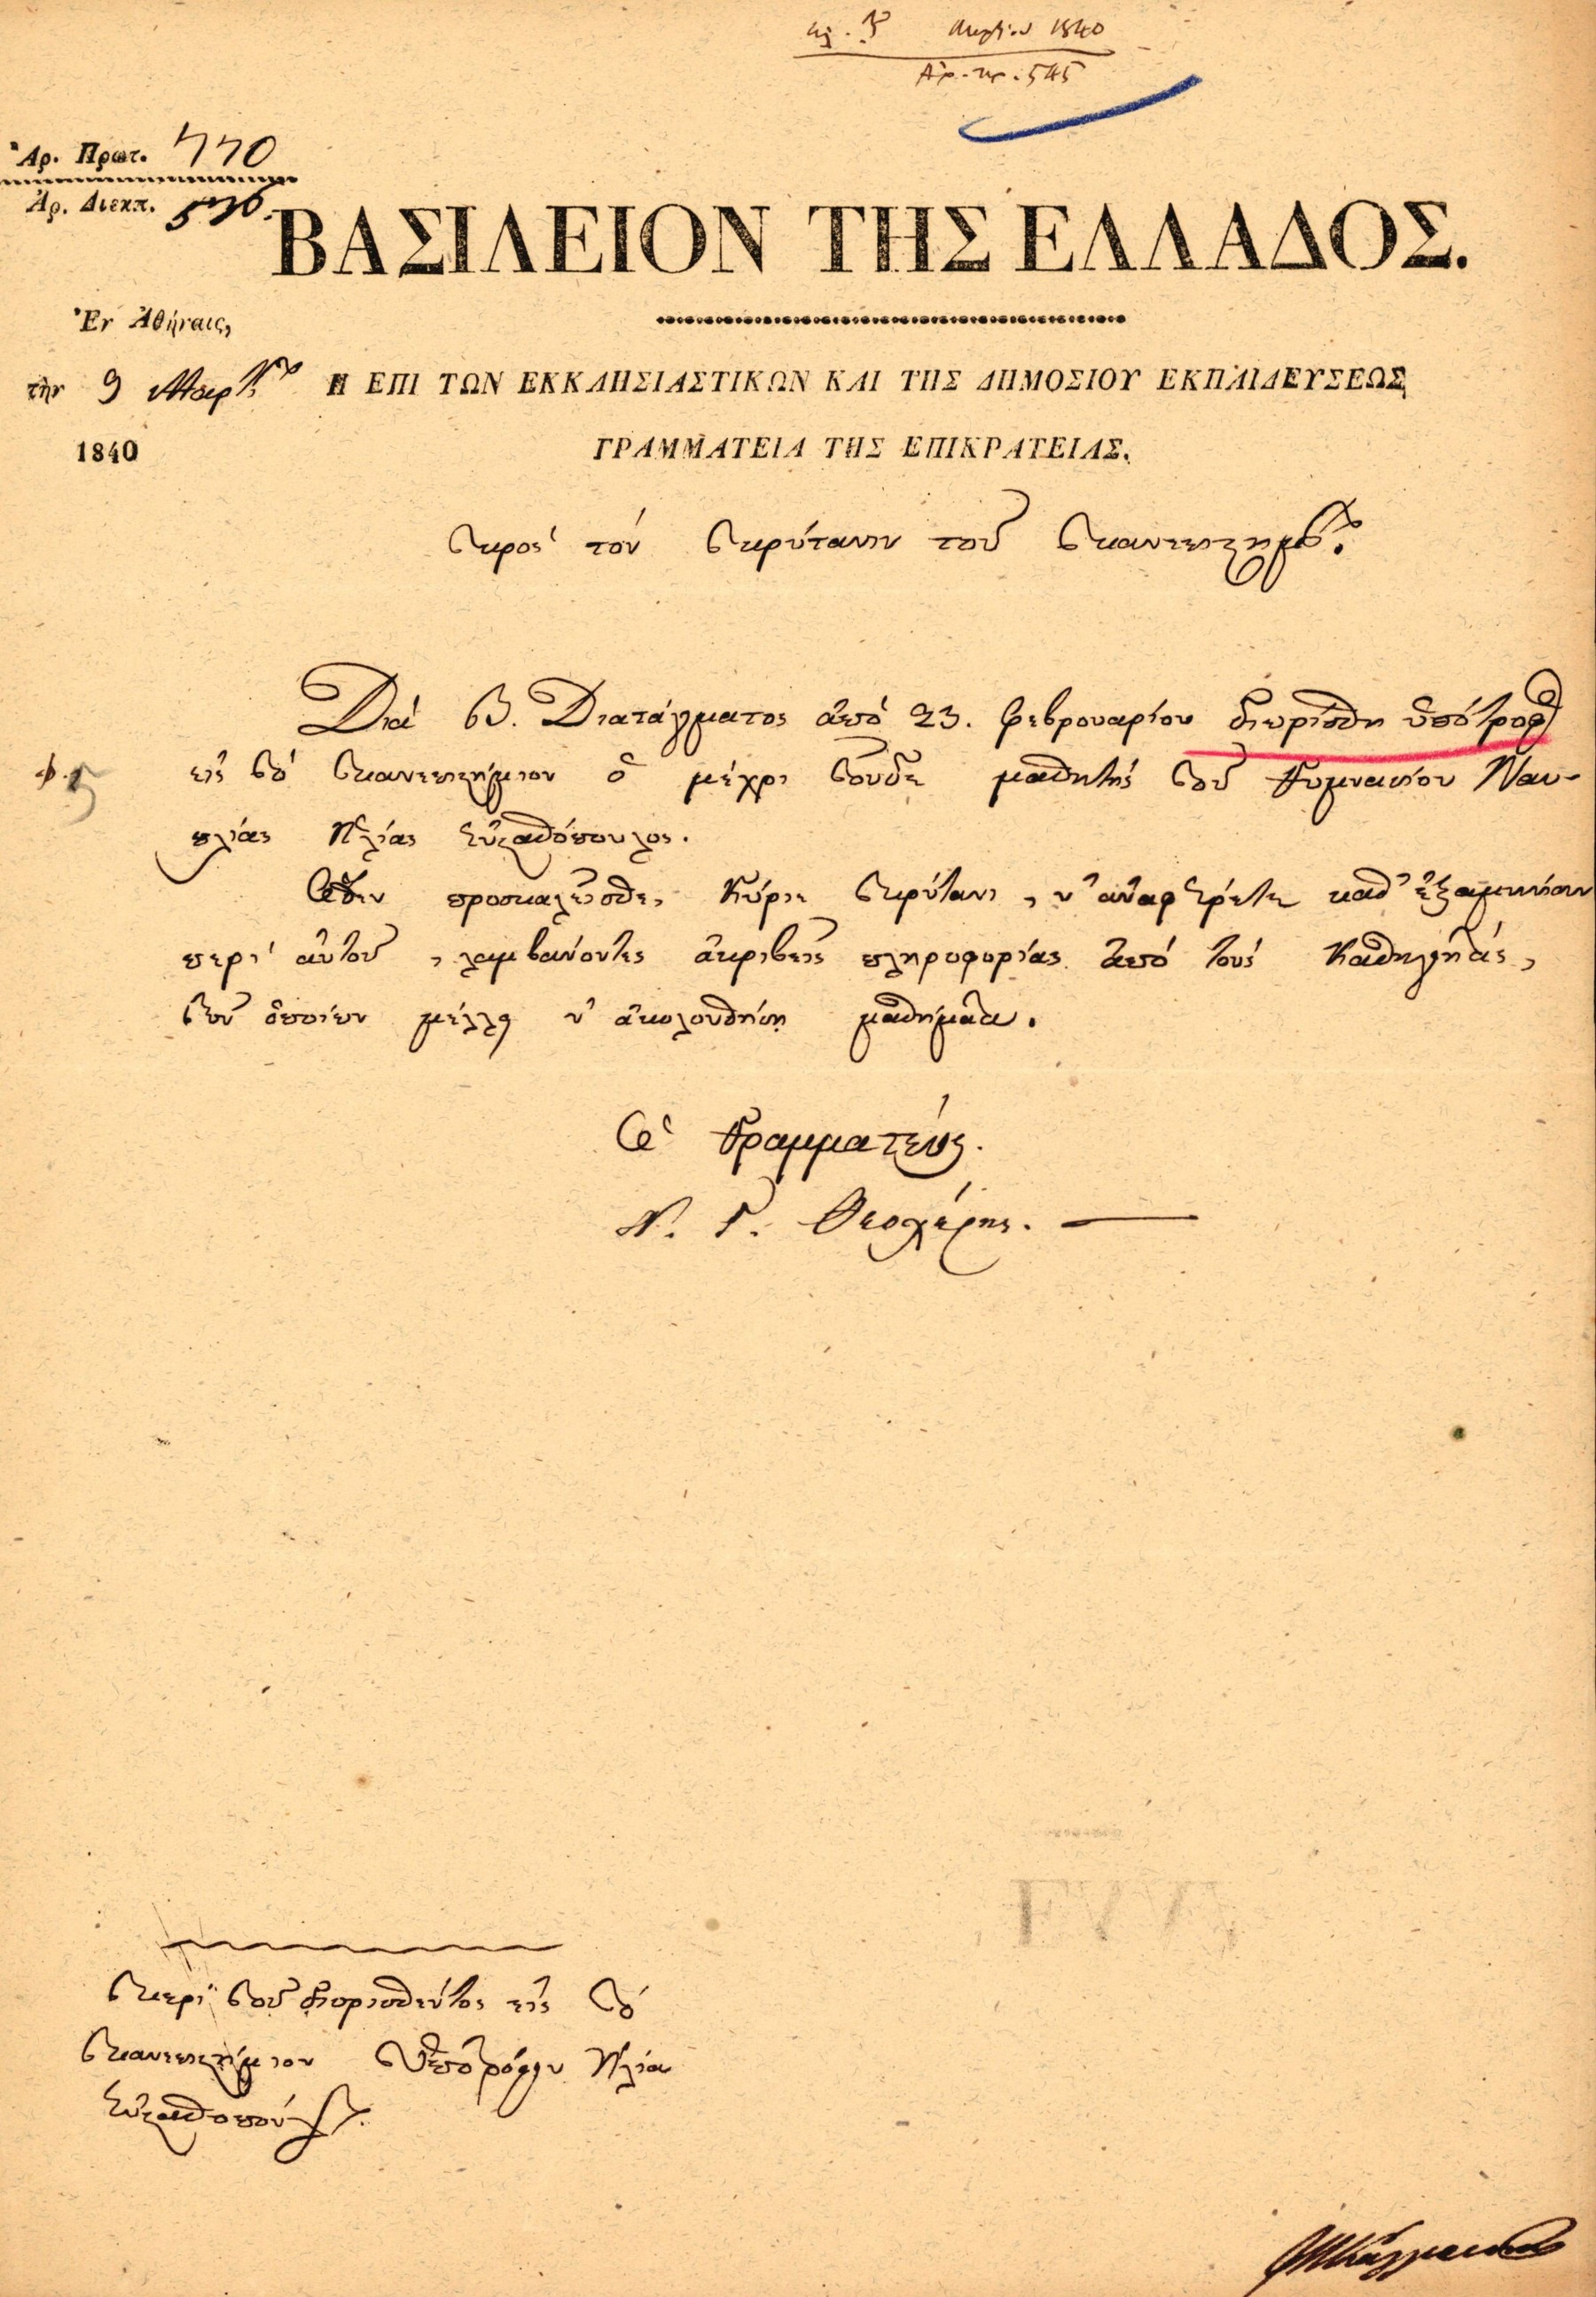 Μαρτίου 1840
Ἀρ. πρ. 545
Ἀρ. Πρωτ. 770
Ἀρ. Διεκπ.
ΒΑΣΙΛΕΙΟΝ ΤΗΣ ΕΛΛΑΔΟΣ.
Ἐν Ἀθήναις,
τὴν 9 Μαρτίου
1840
Η ΕΠΙ ΤΩΝ ΕΚΚΛΗΣΙΑΣΤΙΚΩΝ ΚΑΙ ΤΗΣ ΔΗΜΟΣΙΟΥ ΕΚΠΑΙΔΕΥΣΕΩΣ
ΓΡΑΜΜΑΤΕΙΑ ΤΗΣ ΕΠΙΚΡΑΤΕΙΑΣ.
Πρὸς τὸν Πρύτανιν τοῦ Πανεπιστημίου.
Διὰ Β. Διατάγματος ἀπὸ 23. Φεβρουαρίου διωρίσθη ὑπότροφος
φ. 5
εἰς τὸ Πανεπιστήμιον ὁ μέχρι τοῦδε μαθητὴς τοῦ Γυμνασίου Ναυ-
πλίας Ἠλίας Εὐσταθόπουλος.
Ὅθεν προσκαλεῖσθε, Κύριε Πρύτανι, ν' ἀναφέρετε καθ' ἑξαμηνίαν
περὶ αὐτοῦ, λαμβάνοντες ἀκριβεῖς πληροφορίας ἀπὸ τοὺς Καθηγητάς,
τῶν ὁποίων μέλλει ν' ἀκολουθήσῃ μαθήματα.
Ὁ Γραμματεύς.
Ν. Γ. Θεοχάρης.
Περὶ τοῦ διορισθέντος εἰς τὸ
Πανεπιστήμιον Ὑποτρόφου Ἠλία
Εὐσταθοπούλου.